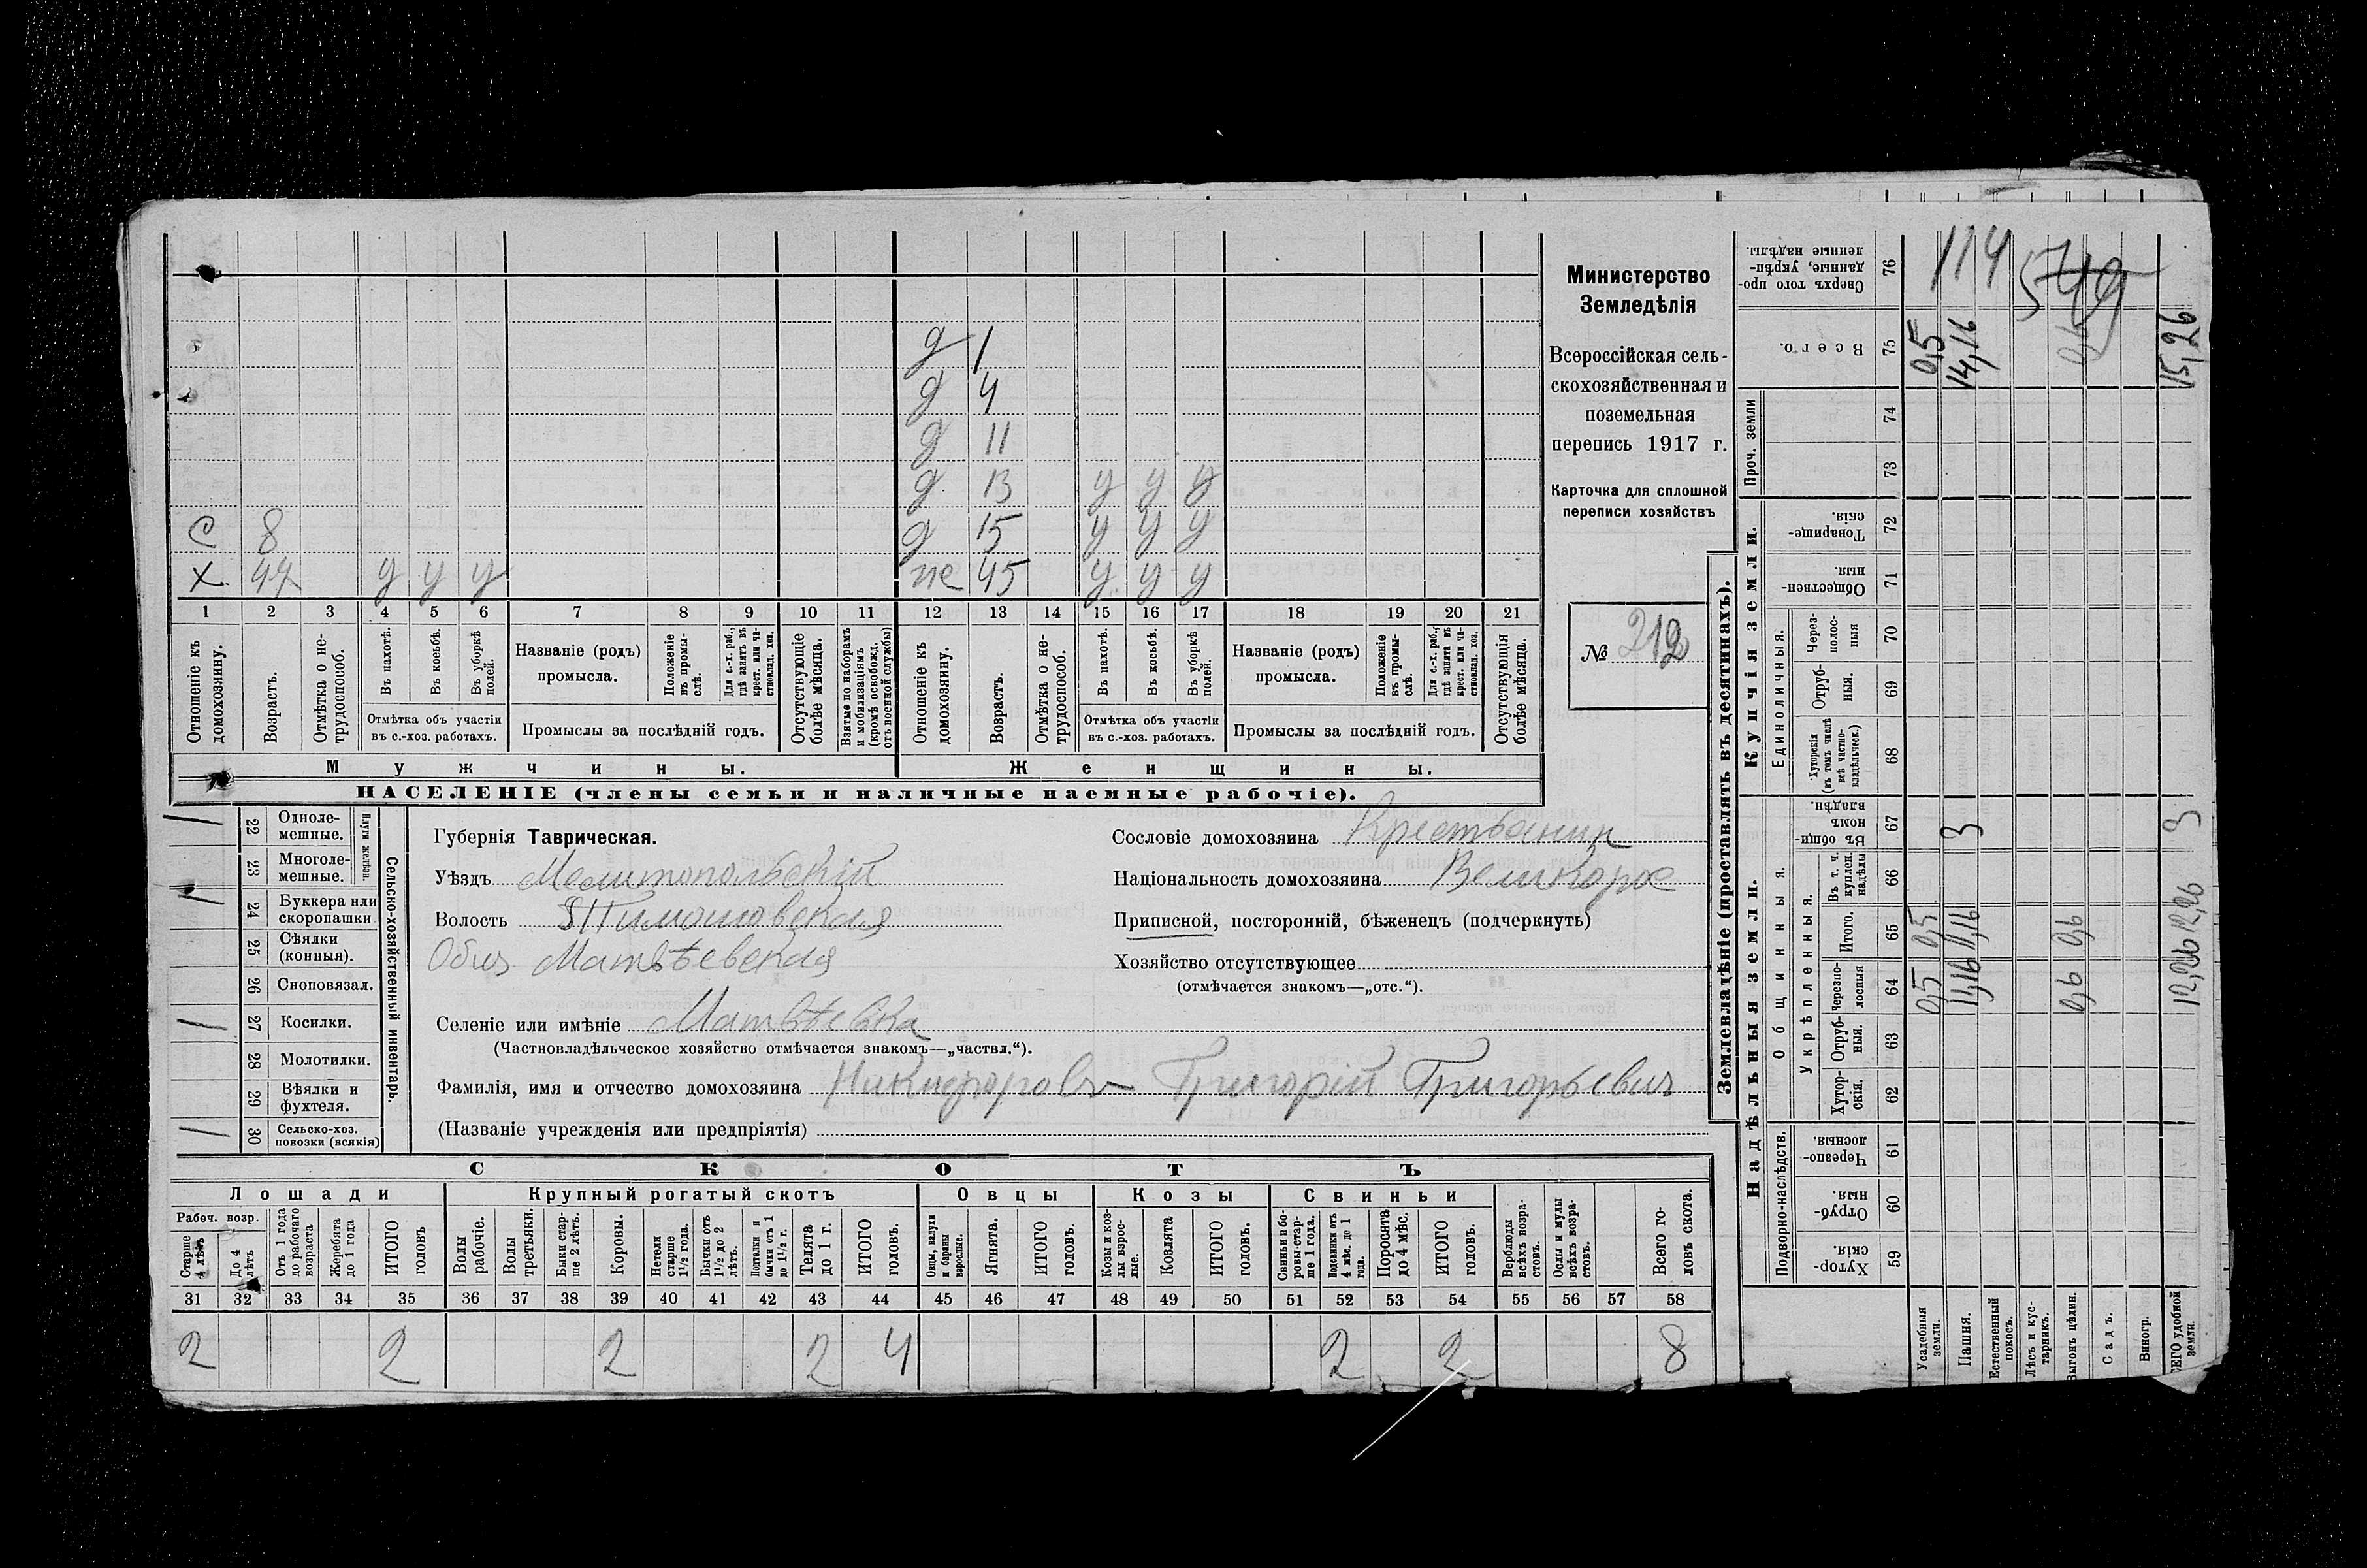 д 1
д 4
д 11
д 13 у у у
с 8 д 15 у у у
х 47 у у у же 45 у у у
1 2 3 4 5 6 7 8 9 10 11 12 13 14 15 16 17 18 19 20 21
Отношеніе къ домохозяину.
Возрастъ.
Отмѣтка о нетрудоспособ.
Въ пахотѣ.
Въ косьбѣ.
Въ уборкѣ полей.
Отмѣтка объ участіи
въ с.-хоз. работахъ.
Названіе (родъ)
промысла.
Положеніе въ промыслѣ.
Для с.-х. раб., гдѣ занятъ въ крест. или частновлад. хоз.
Промыслы за послѣдній годъ.
Отсутствующіе болѣе мѣсяца.
Взятые по наборамъ и мобилизаціямъ (кромѣ освобожд. отъ военной службы)
Отношеніе къ домохозяину.
Возрастъ.
Отмѣтка о нетрудоспособ.
Въ пахотѣ.
Въ косьбѣ.
Въ уборкѣ полей.
Отмѣтка объ участіи
въ с.-хоз. работахъ.
Названіе (родъ)
промысла.
Положеніе въ промыслѣ.
Для с.-х. раб., гдѣ занята въ крест. или частновлад. хоз.
Промыслы за послѣдній годъ.
Отсутствующія болѣе мѣсяца.
Мужчины. Женщины.
НАСЕЛЕНІЕ (члены семьи и наличные наемные рабочіе).
Министерство
Земледѣлія
Всероссійская сель-
скохозяйственная и
поземельная
перепись 1917 г.
Карточка для сплошной
переписи хозяйствъ
№ 212
Сельско-хозяйственный инвентарь.
Плуги желѣзн.
22 Одноле-
мешные.
23 Многоле-
мешные.
24 Буккера или
скоропашки
25 Сѣялки
(конныя).
26 Сноповязал.
27 Косилки.
28 Молотилки.
29 Вѣялки и
фухтеля.
30 Сельско-хоз.
повозки (всякія)
Губернія Таврическая.
Уѣздъ Мелитопольскій
Волость Тимошовская
Общ. Матвѣевская
Селеніе или имѣніе Матвѣевка
(Частновладѣльческое хозяйство отмѣчается знакомъ—„частвл.“).
Фамилія, имя и отчество домохозяина Никифоровъ Григорій Григорьевич
(Названіе учрежденія или предпріятія)
Сословіе домохозяина Крестьянин
Національность домохозяина Великорос
Приписной, посторонній, бѣженецъ (подчеркнуть)
Хозяйство отсутствующее
(отмѣчается знакомъ—„отс.“).
СКОТЪ
Лошади Крупный рогатый скотъ Овцы Козы Свиньи
Рабоч. возр.
Старше 4 лѣтъ
До 4 лѣтъ
Отъ 1 года до рабочаго возраста
Жеребята до 1 года
ИТОГО головъ
Волы рабочіе.
Волы третьяки.
Быки старше 2 лѣтъ.
Коровы.
Нетели старше 1½ года.
Бычки отъ 1½ до 2 лѣтъ.
Подтелки и бычки отъ 1 до 1½ г.
Телята до 1 г.
ИТОГО головъ.
Овцы, валухи и бараны взрослые.
Ягнята.
ИТОГО головъ.
Козы и козлы взрослые.
Козлята
ИТОГО головъ.
Свиньи и боровы старше 1 года.
Подсвинки отъ 4 мѣс. до 1 года.
Поросята до 4 мѣс.
ИТОГО головъ.
Верблюды всѣхъ возрастовъ.
Ослы и мулы всѣхъ возрастовъ.
Всего головъ скота.
31 32 33 34 35 36 37 38 39 40 41 42 43 44 45 46 47 48 49 50 51 52 53 54 55 56 57 58
2 2 2 2 4 2 2 8
Землевладѣніе (проставлять въ десятинахъ).
Надѣльныя земли. Купчія земли.
Подворно-наслѣдств.
Общинныя.
Укрѣпленныя.
Единоличныя.
Проч. земли
59 Хуторскія.
60 Отрубныя.
61 Черезполосныя.
62 Хуторскія.
63 Отрубныя.
64 Черезполосныя
65 Итого.
66 Въ т. ч. куплен. надѣлы
67 Въ общинномъ владѣн.
68 Хуторскія (въ томъ числѣ всѣ частновладѣльческ.)
69 Отрубныя.
70 Черезполосныя
71 Общественныя.
72 Товарищескія.
73
74
75 Всего.
76 Сверхъ того проданные, укрѣпленные надѣлы.
Усадебныя земли. 0,5 0,5 0,5
Пашня. 11,16 11,16 3 14,16 114
Естественный покосъ.
Лѣсъ и кустарникъ.
Выгонъ цѣлин. 0,6 0,6 0,6
Садъ.
Виногр.
ВСЕГО удобной земли. 12,26 12,26 3 15,26